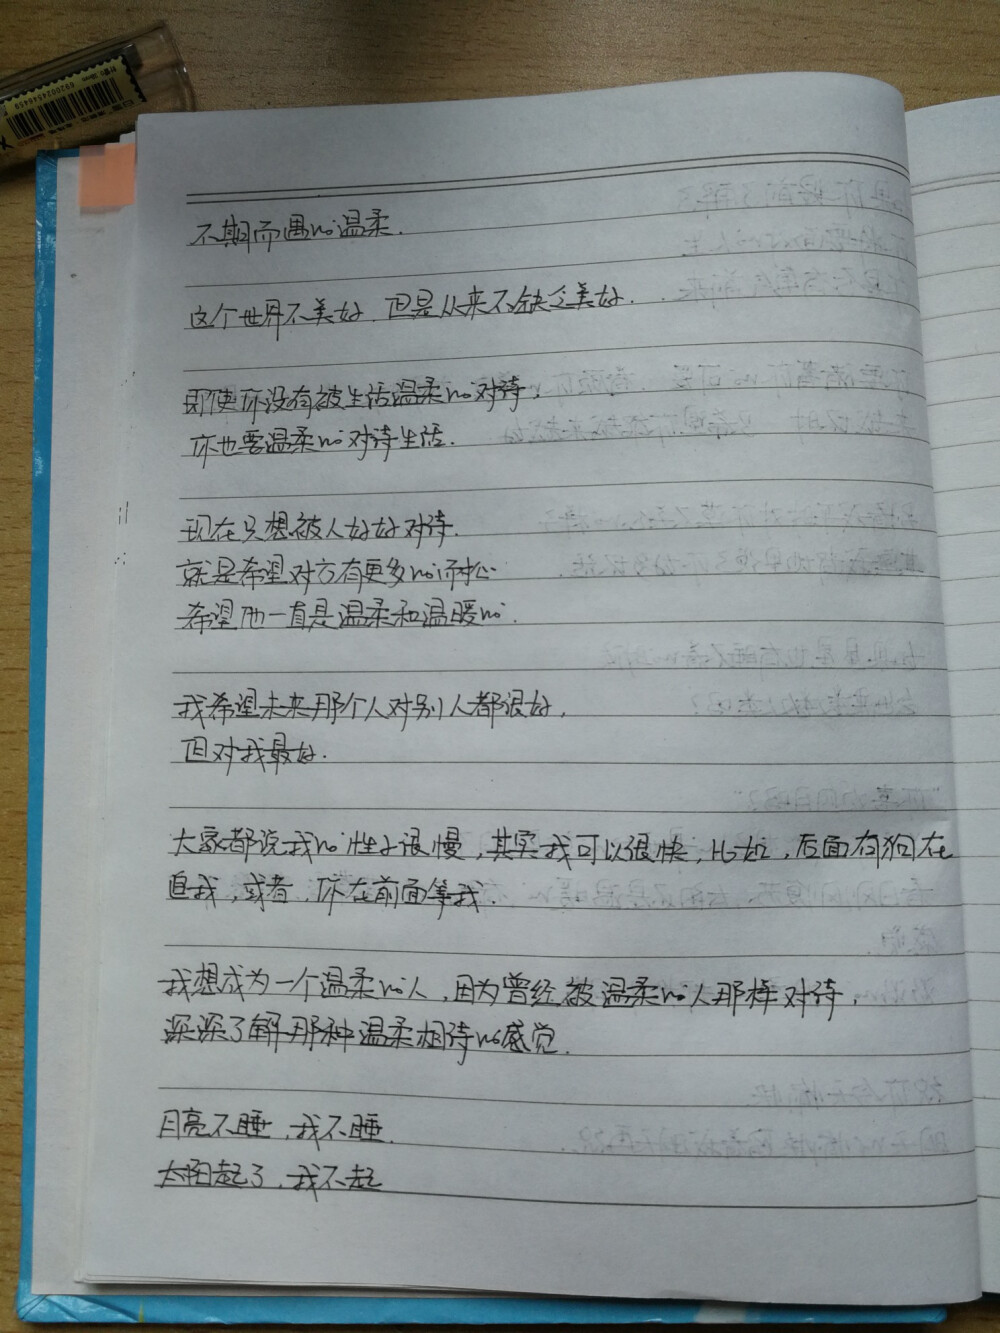 6920024548469
不期而遇no温柔.
这个世界不美好.但是从来不缺乏美好.
即使你没有被生活温柔no对待,
你也要温柔no对待生活.
现在只想被人好好对待.
就是希望对方有更多no耐心
希望他一直是温柔和温暖no.
我希望未来那个人对别人都很好,
但对我最好.
大家都说我no性子很慢,其实我可以很快,比如,后面有狗在
追我,或者,你在前面等我.
我想成为一个温柔no人,因为曾经被温柔no人那样对待,
深深了解那种温柔相待no感觉.
月亮不睡,我不睡.
太阳起了,我不起